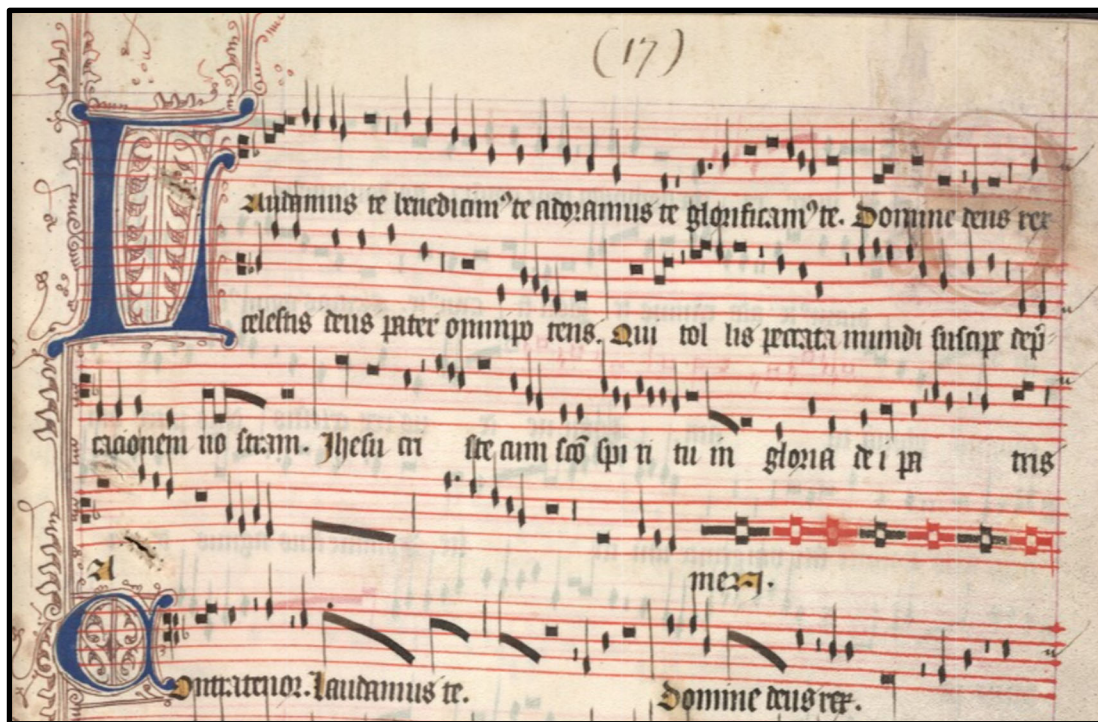 (17)
Laudamus te benedicimꝰ te adoramus te glorificamꝰ te. Domine deus rex
celestis deus pater omnipo tens. Qui tol lis peccata mundi suscipe dep̄
cacionem no stram. Jhesu cri ste cum sc̄o spi ri tu in gloria de i pa tris
A men.
Contratenor. Laudamus te. Domine deus rex.